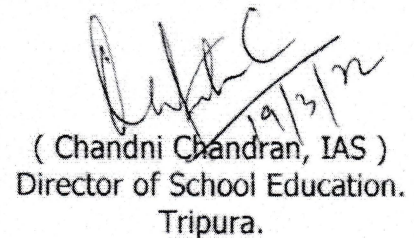 19/3/22
( Chandni Chandran, IAS )
Director of School Education.
Tripura.